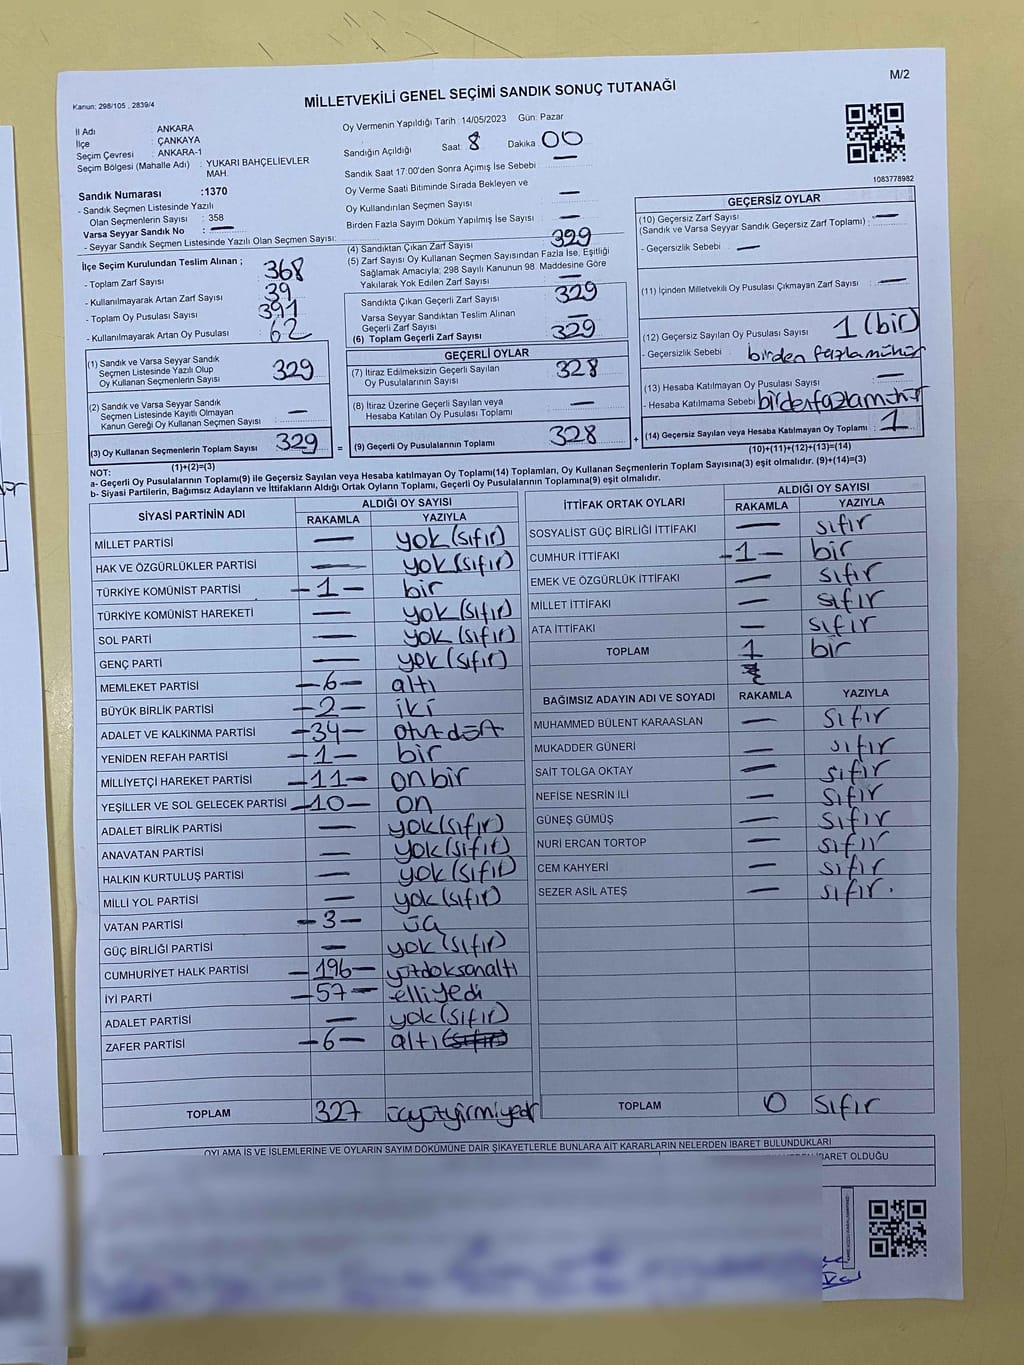 M/2
Kanun: 298/105 , 2839/4
MİLLETVEKİLİ GENEL SEÇİMİ SANDIK SONUÇ TUTANAĞI
İl Adı : ANKARA
İlçe : ÇANKAYA
Seçim Çevresi : ANKARA-1
Seçim Bölgesi (Mahalle Adı) : YUKARI BAHÇELİEVLER MAH.
Sandık Numarası :1370
- Sandık Seçmen Listesinde Yazılı
Olan Seçmenlerin Sayısı : 358
Varsa Seyyar Sandık No : —
- Seyyar Sandık Seçmen Listesinde Yazılı Olan Seçmen Sayısı:
Oy Vermenin Yapıldığı Tarih : 14/05/2023 Gün: Pazar
Sandığın Açıldığı Saat: 8 Dakika 00
Sandık Saat 17:00'den Sonra Açımış İse Sebebi : —
Oy Verme Saati Bitiminde Sırada Bekleyen ve
Oy Kullandırılan Seçmen Sayısı : —
Birden Fazla Sayım Döküm Yapılmış İse Sayısı : —
1083778982
İlçe Seçim Kurulundan Teslim Alınan ;
- Toplam Zarf Sayısı : 368
- Kullanılmayarak Artan Zarf Sayısı : 39
- Toplam Oy Pusulası Sayısı : 391
- Kullanılmayarak Artan Oy Pusulası : 62
(1) Sandık ve Varsa Seyyar Sandık
Seçmen Listesinde Yazılı Olup
Oy Kullanan Seçmenlerin Sayısı : 329
(2) Sandık ve Varsa Seyyar Sandık
Seçmen Listesinde Kayıtlı Olmayan
Kanun Gereği Oy Kullanan Seçmen Sayısı : —
(3) Oy Kullanan Seçmenlerin Toplam Sayısı : 329
(1)+(2)=(3)
(4) Sandıktan Çıkan Zarf Sayısı : 329
(5) Zarf Sayısı Oy Kullanan Seçmen Sayısından Fazla İse, Eşitliği
Sağlamak Amacıyla, 298 Sayılı Kanunun 98 Maddesine Göre
Yakılarak Yok Edilen Zarf Sayısı : —
Sandıkta Çıkan Geçerli Zarf Sayısı : 329
Varsa Seyyar Sandıktan Teslim Alınan
Geçerli Zarf Sayısı : —
(6) Toplam Geçerli Zarf Sayısı : 329
GEÇERLİ OYLAR
(7) İtiraz Edilmeksizin Geçerli Sayılan
Oy Pusulalarının Sayısı : 328
(8) İtiraz Üzerine Geçerli Sayılan veya
Hesaba Katılan Oy Pusulası Toplamı : —
= (9) Geçerli Oy Pusulalarının Toplamı : 328 +
GEÇERSİZ OYLAR
(10) Geçersiz Zarf Sayısı
(Sandık ve Varsa Seyyar Sandık Geçersiz Zarf Toplamı) : —
- Geçersizlik Sebebi : —
(11) İçinden Milletvekili Oy Pusulası Çıkmayan Zarf Sayısı : —
(12) Geçersiz Sayılan Oy Pusulası Sayısı : 1 (bir)
- Geçersizlik Sebebi : birden fazla mühür
(13) Hesaba Katılmayan Oy Pusulası Sayısı : —
- Hesaba Katılmama Sebebi birden fazla mühür
(14) Geçersiz Sayılan veya Hesaba Katılmayan Oy Toplamı : 1
(10)+(11)+(12)+(13)=(14)
NOT:
a- Geçerli Oy Pusulalarının Toplamı(9) ile Geçersiz Sayılan veya Hesaba katılmayan Oy Toplamı(14) Toplamları, Oy Kullanan Seçmenlerin Toplam Sayısına(3) eşit olmalıdır. (9)+(14)=(3)
b- Siyasi Partilerin, Bağımsız Adayların ve İttifakların Aldığı Ortak Oyların Toplamı, Geçerli Oy Pusulalarının Toplamına(9) eşit olmalıdır.
SİYASİ PARTİNİN ADI ALDIĞI OY SAYISI
RAKAMLA YAZIYLA
MİLLET PARTİSİ — yok (sıfır)
HAK VE ÖZGÜRLÜKLER PARTİSİ — yok (sıfır)
TÜRKİYE KOMÜNİST PARTİSİ —1— bir
TÜRKİYE KOMÜNİST HAREKETİ — yok (sıfır)
SOL PARTİ — yok (sıfır)
GENÇ PARTİ — yok (sıfır)
MEMLEKET PARTİSİ —6— altı
BÜYÜK BİRLİK PARTİSİ —2— iki
ADALET VE KALKINMA PARTİSİ —34— otuzdört
YENİDEN REFAH PARTİSİ —1— bir
MİLLİYETÇİ HAREKET PARTİSİ —11— onbir
YEŞİLLER VE SOL GELECEK PARTİSİ —10— on
ADALET BİRLİK PARTİSİ — yok (sıfır)
ANAVATAN PARTİSİ — yok (sıfır)
HALKIN KURTULUŞ PARTİSİ — yok (sıfır)
MİLLİ YOL PARTİSİ — yok (sıfır)
VATAN PARTİSİ —3— üç
GÜÇ BİRLİĞİ PARTİSİ — yok (sıfır)
CUMHURİYET HALK PARTİSİ —196— yüzdoksanaltı
İYİ PARTİ —57— elliyedi
ADALET PARTİSİ — yok (sıfır)
ZAFER PARTİSİ —6— altı (sıfır)
TOPLAM 327 üçyüzyirmiyedi
İTTİFAK ORTAK OYLARI ALDIĞI OY SAYISI
RAKAMLA YAZIYLA
SOSYALİST GÜÇ BİRLİĞİ İTTİFAKI — sıfır
CUMHUR İTTİFAKI —1— bir
EMEK VE ÖZGÜRLÜK İTTİFAKI — sıfır
MİLLET İTTİFAKI — sıfır
ATA İTTİFAKI — sıfır
TOPLAM 1 bir
BAĞIMSIZ ADAYIN ADI VE SOYADI RAKAMLA YAZIYLA
MUHAMMED BÜLENT KARAASLAN — sıfır
MUKADDER GÜNERİ — sıfır
SAİT TOLGA OKTAY — sıfır
NEFİSE NESRİN İLİ — sıfır
GÜNEŞ GÜMÜŞ — sıfır
NURİ ERCAN TORTOP — sıfır
CEM KAHYERİ — sıfır
SEZER ASIL ATEŞ — sıfır.
TOPLAM 0 sıfır
OYLAMA İŞ VE İŞLEMLERİNE VE OYLARIN SAYIM DÖKÜMÜNE DAİR ŞİKAYETLERLE BUNLARA AİT KARARLARIN NELERDEN İBARET BULUNDUKLARI
İBARET OLDUĞU